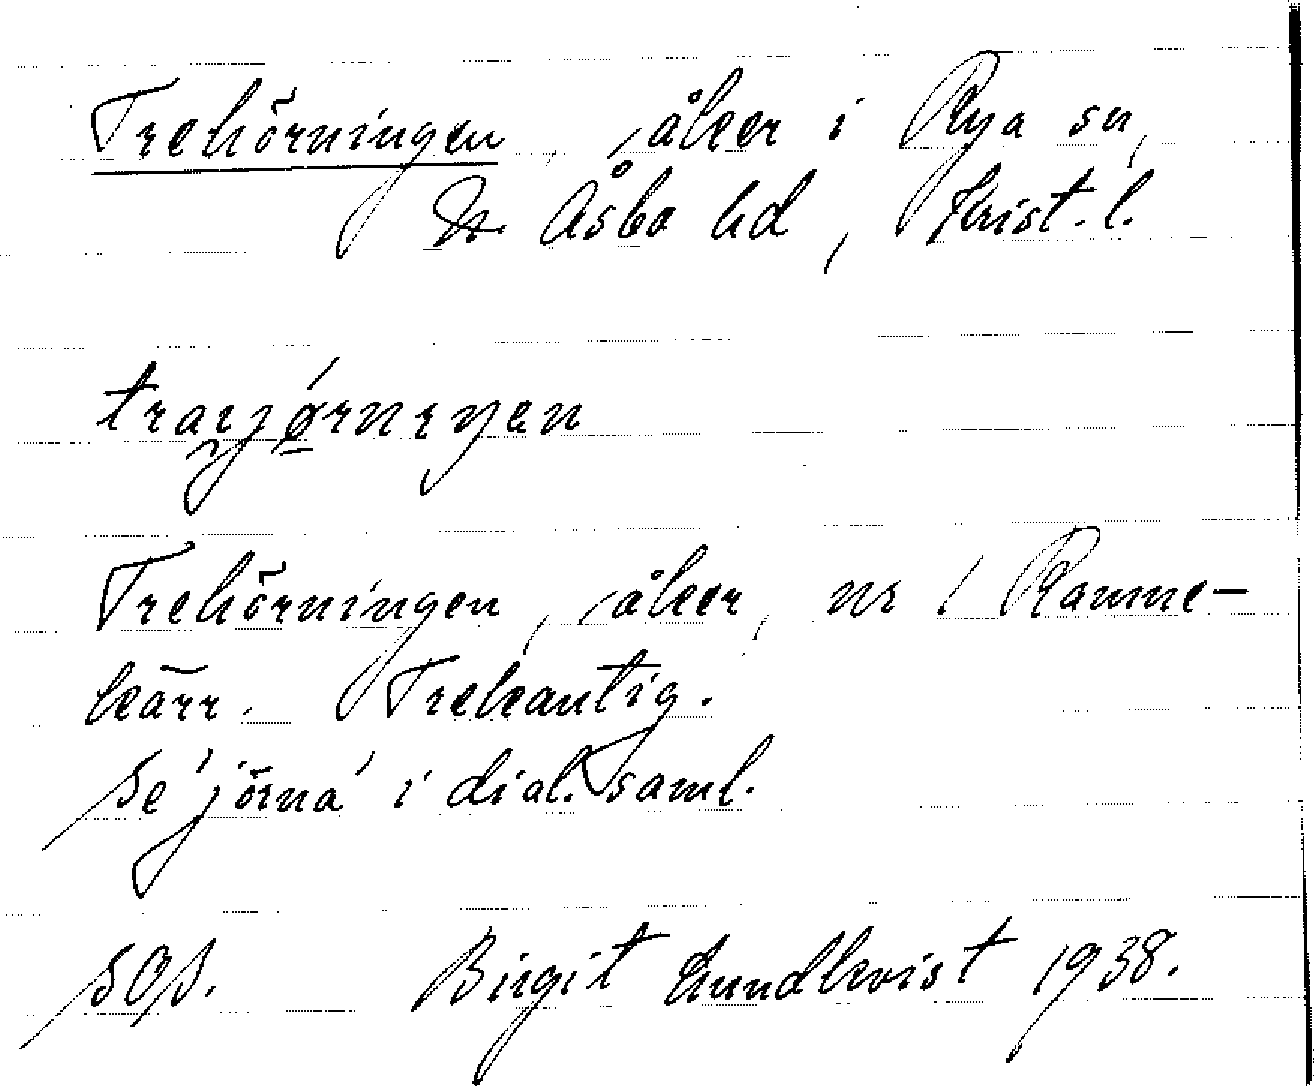 Trehörningen, åker i Rya sn,
N. Åsbo hd, Krist. l.
Trehörningen, åker, nr 1 Ramne-
kärr. Trekantig.
Se 'jörna' i dial. saml.
SOS. Birgit Lundkvist 1938.